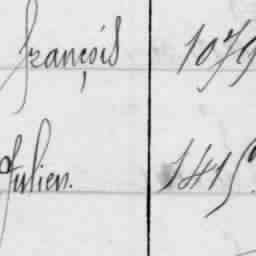 françois 1079
Julien. 1415